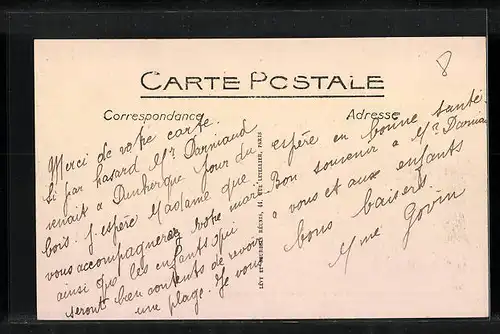 8
CARTE POSTALE
Correspondance
Adresse
Merci de votre carte.
Si par hasard Mr Darniaud
venait à Dunkerque pour du
bois. J'espère Madame que
vous accompagnerez votre mari
ainsi que les enfants qui
seront bien contents de revoir
une plage. Je vous
LÉVY ET NEURDEIN RÉUNIS, 44, RUE LETELLIER, PARIS
espère en bonne santé.
Bon souvenir à Mr
à vous et aux enfants
bons baisers.
Mme Govin